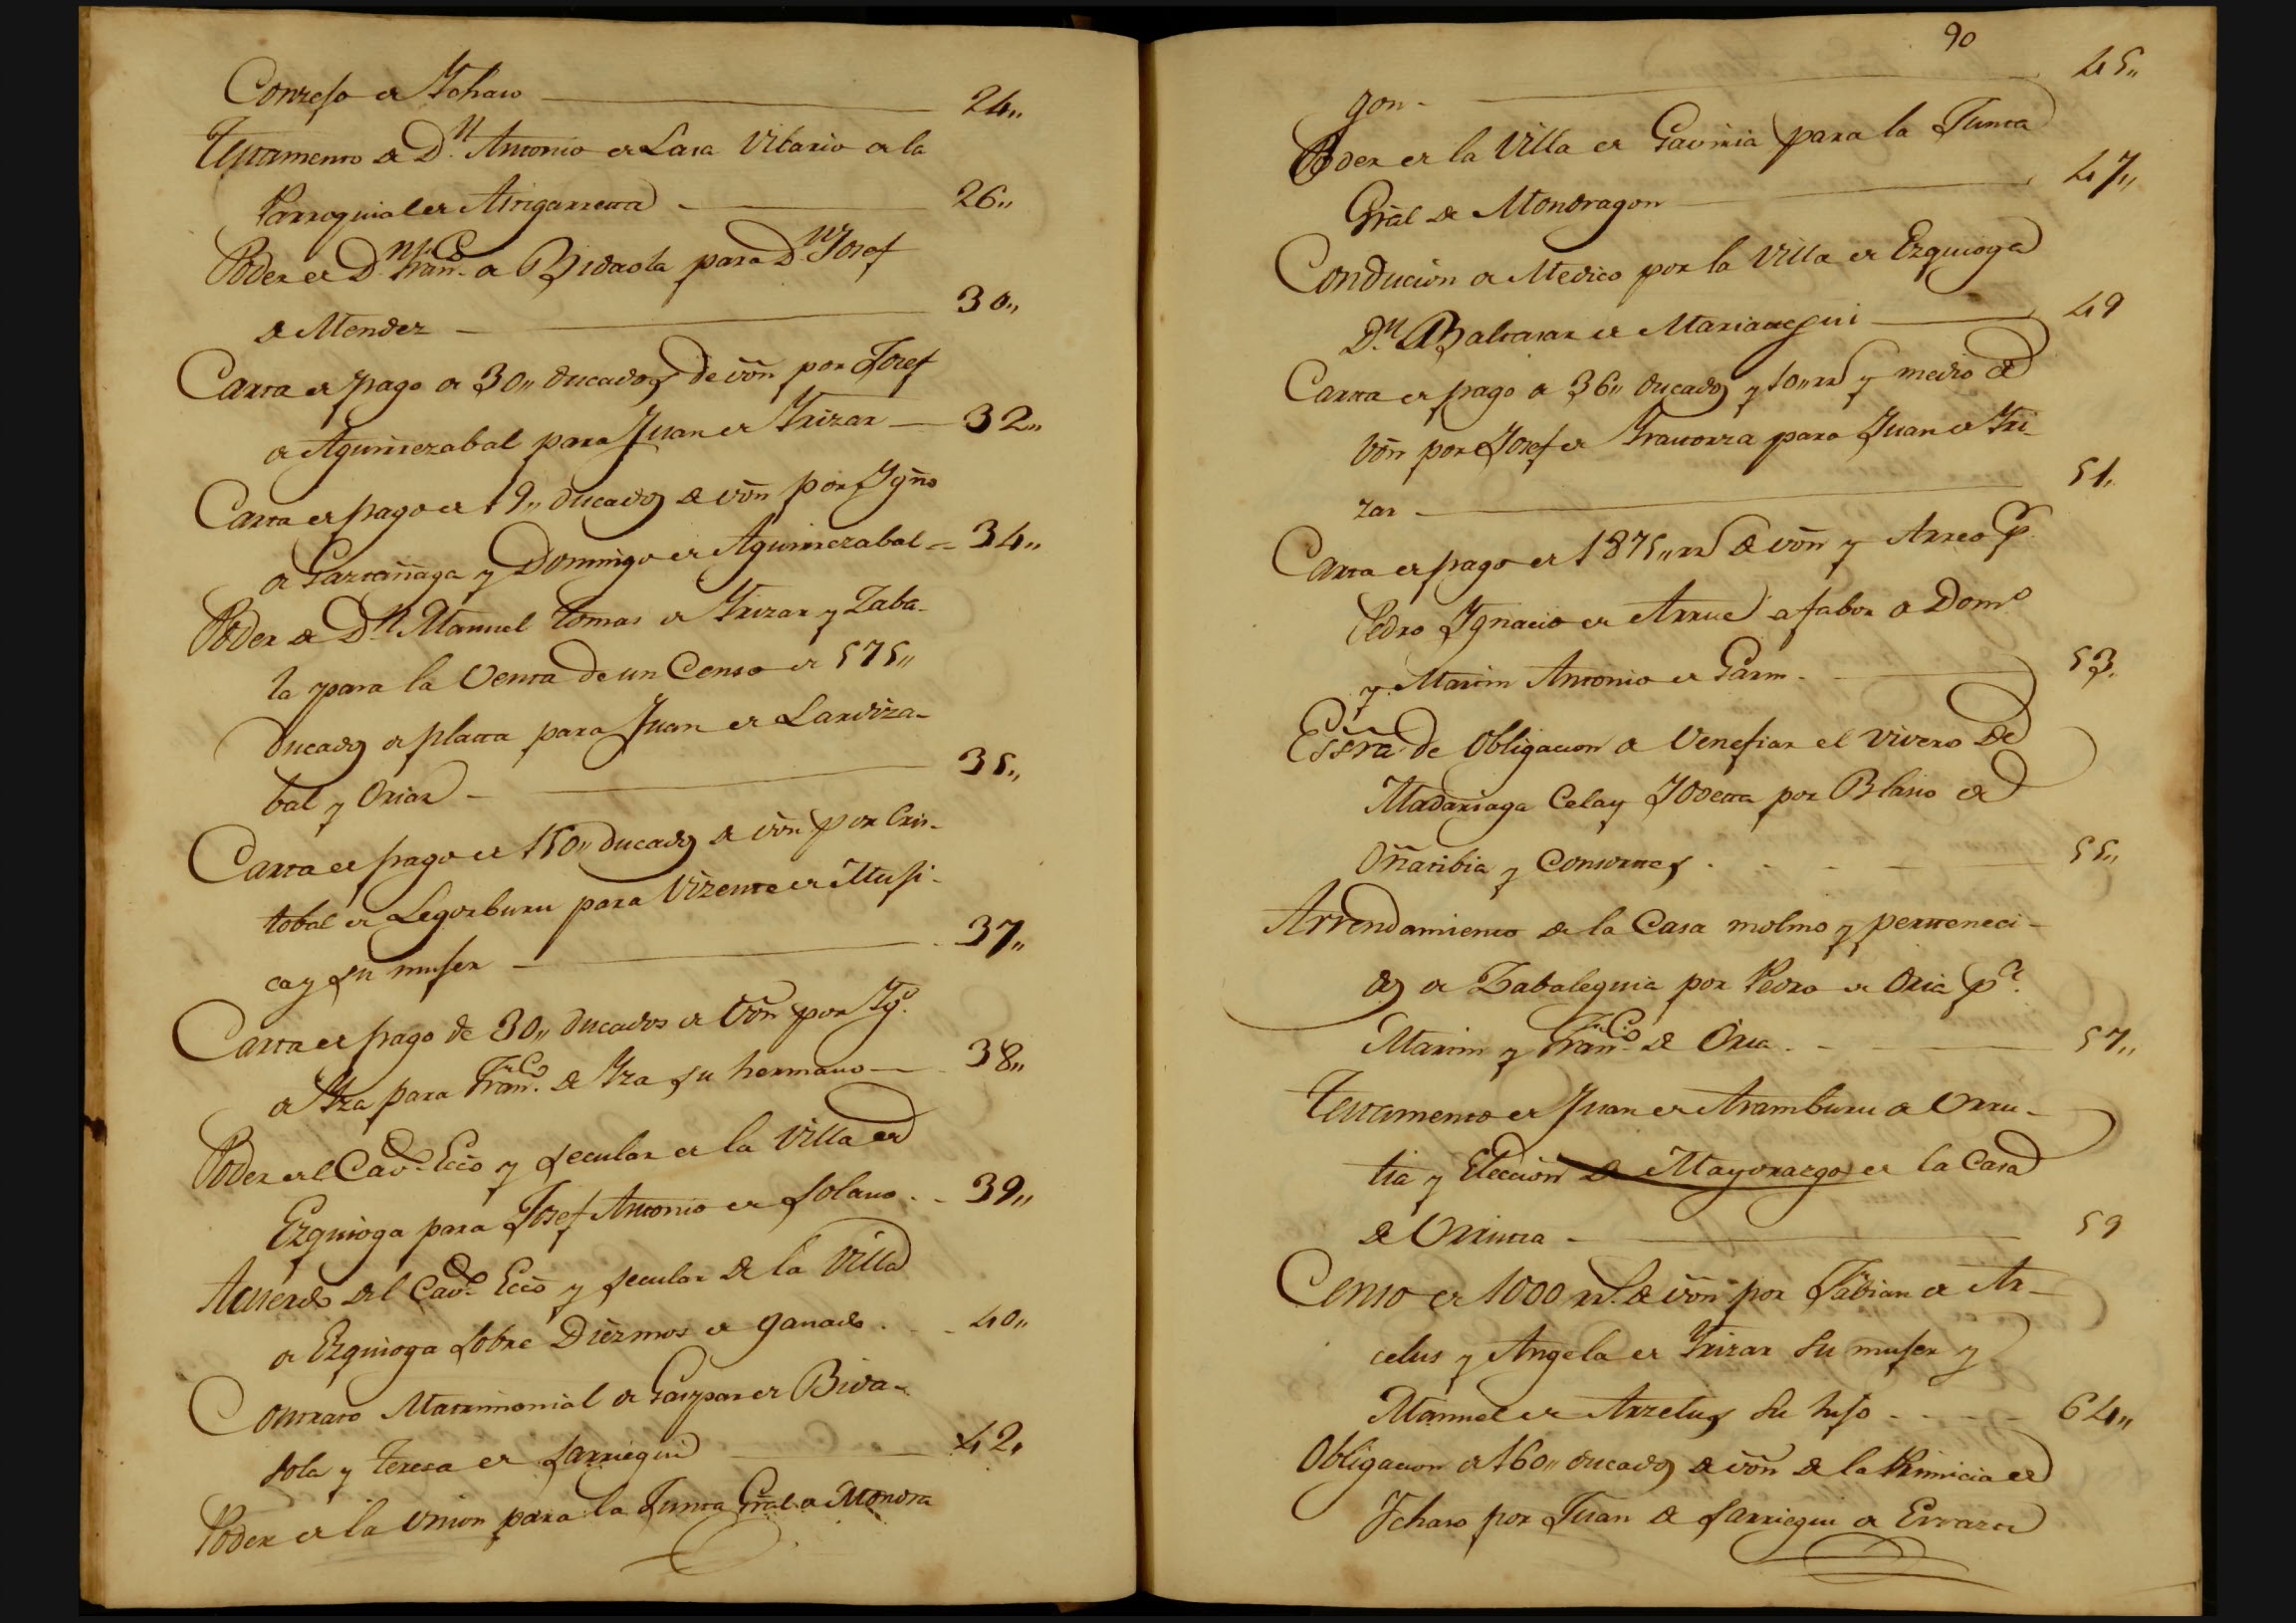 Conzejo de Ychaso 24,,
Testamento de D.n Antonio de Lasa Vicario de la
Parroquial de Astigarreta 26,,
Poder de D.n Fran.co de Bidaola para D.n Josef
de Mendez 30,,
Carta de pago de 30,, ducados de vôn por Josef
de Aguirrezabal para Juan de Yrizar 32,,
Carta de pago de 19,, ducados de vôn por Ygño
de Garcañaga y Domingo de Aguirrezabal 34,,
Poder de D.n Manuel tomas de Yrizar y Zaba-
la para la Venta de un Censo de 575,,
ducados de platta para Juan de Lardiza-
bal y Oriar 35,,
Carta de pago de 150,, ducados de vôn por Cris-
tobal de Legorburu para Vizente de Musi-
ca y su muger 37,,
Carta de pago de 30,, ducados de vôn por Yg.o
de Yza para Fran.co de Yza su hermano 38,,
Poder del Cav.o Ecc̃o y secular de la Villa de
Ezquioga para Josef Antonio de Solano 39,,
Acuerdo del Cav.o Ecc̃o y secular de la Villa
de Ezquioga sobre Diezmos de ganado 40,,
Contrato Matrimonial de Gaspar de Bida-
sola y Teresa de Sarriegui 42,
Poder de la Union para la Junta Grãl de Mondra
90
gon 45,,
Poder de la Villa de Gaviria para la Junta
Grãl de Mondragon 47,,
Conducion de Medico por la Villa de Ezquioga
D.n Baltasar de Mariategui 49
Carta de pago de 36,, ducados y 10,, rs y medio de
vôn por Josef de Yraeta para Juan de Yri-
zar 51,
Carta de pago de 1875,, rs de vôn y Arreo p.r
Pedro Ygnacio de Arrue a fabor de Dom.o
y Martin Antonio de Garin 53,
Essrã de Obligacion de Venefiar el vivero de
Madariaga Celay Yoverra por Blasio de
Oñatibia y Consortes 55,,
Arrendamiento de la Casa molino y perteneci-
dos de Zabaleguia por Pedro de Oria p.a
Martin y Fran.co de Oria 57,,
Testamento de Juan de Aramburu de Urru-
tia y Eleccion de Mayorazgo de la Casa
de Urrutia 59
Censo de 1000 rs. de vôn por Fabian de Ar-
celus y Angela de Yrizar su muger y
Manuel de Arzelus su hijo 64,,
Obligacion de 160,, ducados de vôn de la Primicia de
Ychaso por Juan de Sarriegui de Errazu